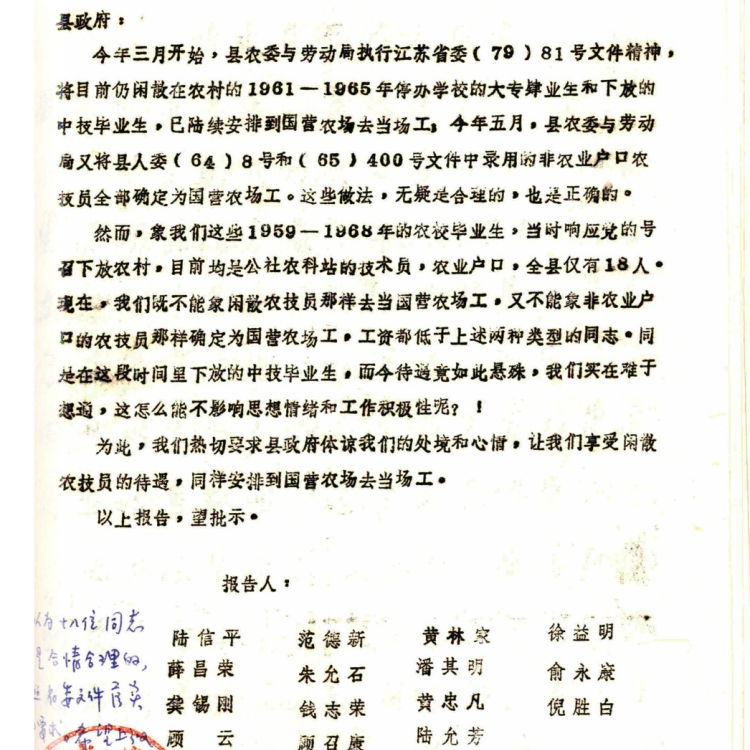 县政府：
今年三月开始，县农委与劳动局执行江苏省委（79）81号文件精神，
将目前仍闲散在农村的1961—1965年停办学校的大专肄业生和下放的
中技毕业生，已陆续安排到国营农场去当场工；今年五月，县农委与劳动
局又将县人委（64）8号和（65）400号文件中录用的非农业户口农
技员全部确定为国营农场工。这些做法，无疑是合理的，也是正确的。
然而，象我们这些1959—1968年的农校毕业生，当时响应党的号
召下放农村，目前均是公社农科站的技术员，农业户口，全县仅有18人。
现在，我们既不能象闲散农技员那样去当国营农场工，又不能象非农业户
口的农技员那样确定为国营农场工，工资都低于上述两种类型的同志。同
是在这段时间里下放的中技毕业生，而今待遇竟如此悬殊，我们实在难于
想通，这怎么能不影响思想情绪和工作积极性呢？！
为此，我们热切要求县政府体谅我们的处境和心情，让我们享受闲散
农技员的待遇，同样安排到国营农场去当场工。
以上报告，望批示。
报告人：
陆信平 范德新 黄林家 徐益明
薛昌荣 朱允石 潘其明 俞永康
龚锡刚 钱志荣 黄忠凡 倪胜白
顾云 顾召康 陆允芳
十八位同志
是合情合理的，
文件
希望上级